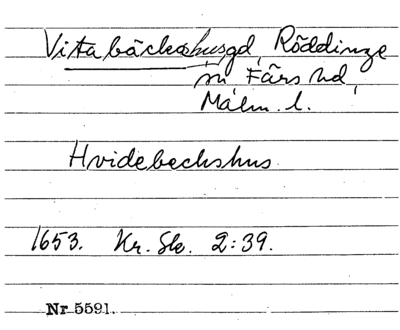 Vitabäckshusgd, Röddinge
sn, Färs hd,
Malm. l.
Hvidebechshus
1653. Kr. Sk. 2:39.
Nr 5591.